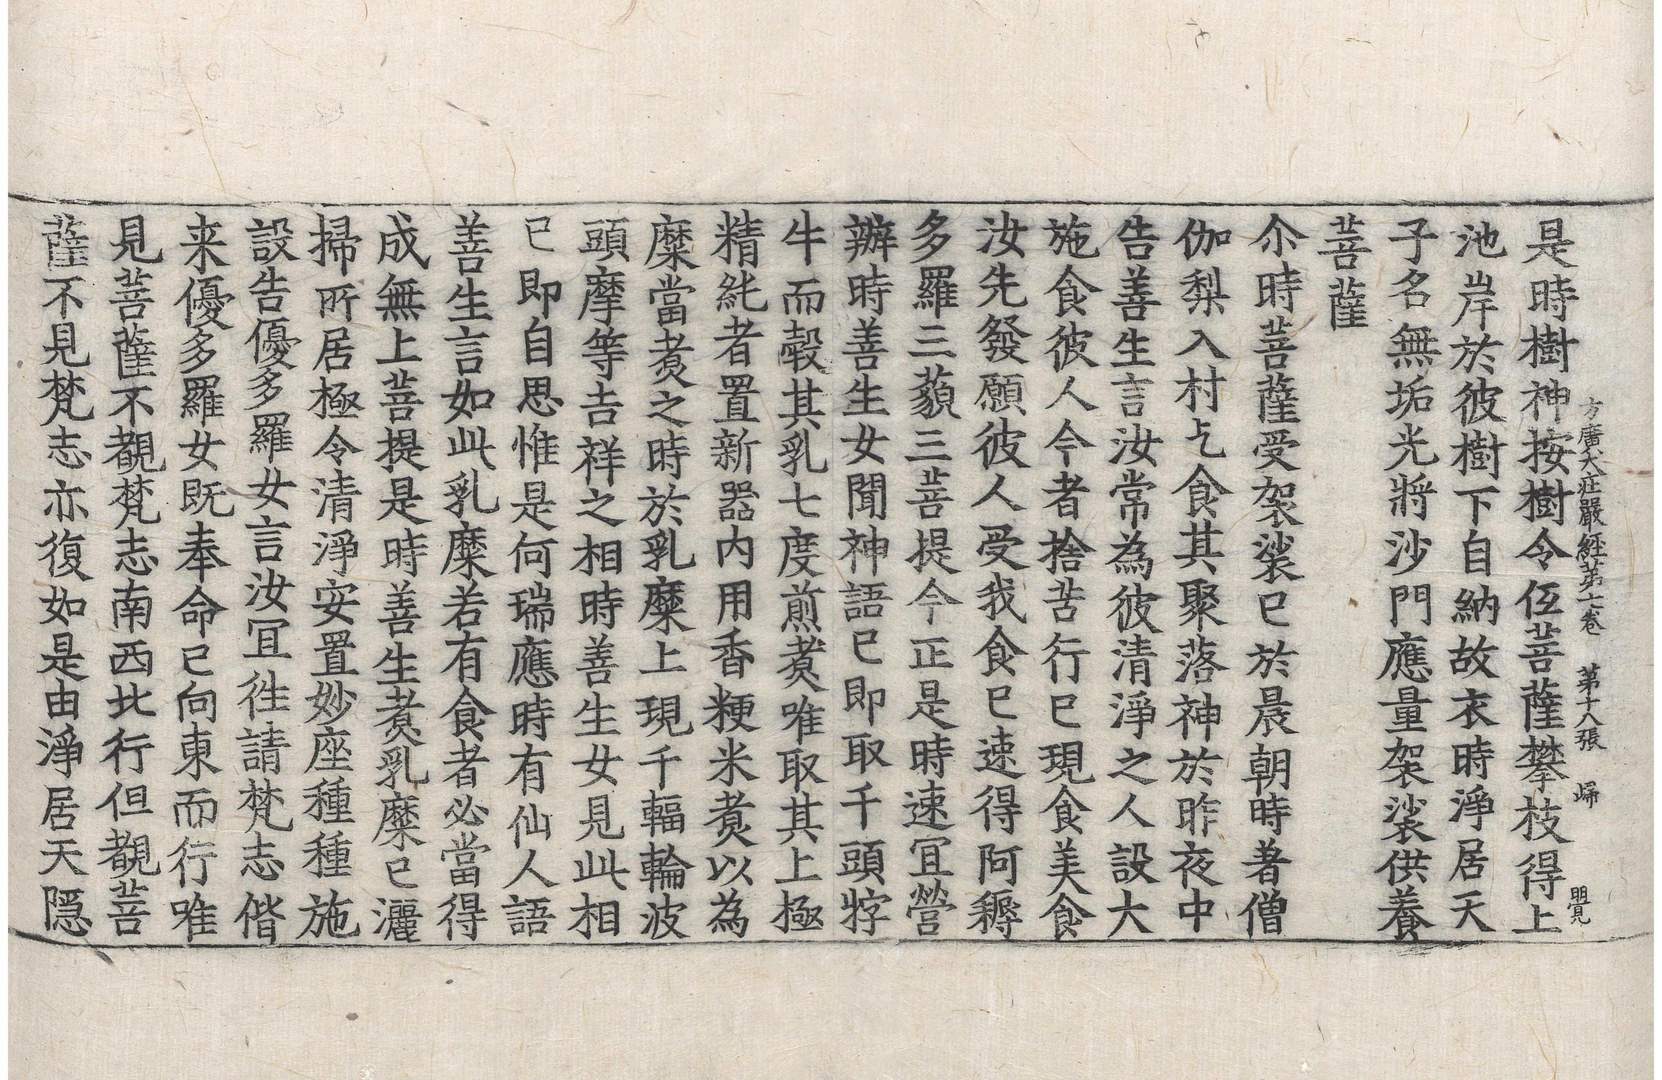 方廣大莊嚴經第七卷　第十八張　歸
明覺
是時樹神按樹令仾菩薩攀枝得上
池岸於彼樹下自納故衣時淨居天
子名無垢光將沙門應量袈裟供養
菩薩
尒時菩薩受袈裟已於晨朝時著僧
伽梨入村乞食其聚落神於昨夜中
告善生言汝常為彼清淨之人設大
施食彼人今者捨苦行已現食美食
汝先發願彼人受我食已速得阿耨
多羅三藐三菩提今正是時速冝營
辦時善生女聞神語已即取千頭牸
牛而𤛗其乳七度煎煮唯取其上極
精純者置新器內用香粳米煮以為
糜當煮之時於乳糜上現千輻輪波
頭摩等吉祥之相時善生女見此相
已即自思惟是何瑞應時有仙人語
善生言如此乳糜若有食者必當得
成無上菩提是時善生煮乳糜已灑
掃所居極令清淨安置妙座種種施
設告優多羅女言汝冝往請梵志偕
来優多羅女既奉命已向東而行唯
見菩薩不覩梵志南西北行但覩菩
薩不見梵志亦復如是由淨居天隱